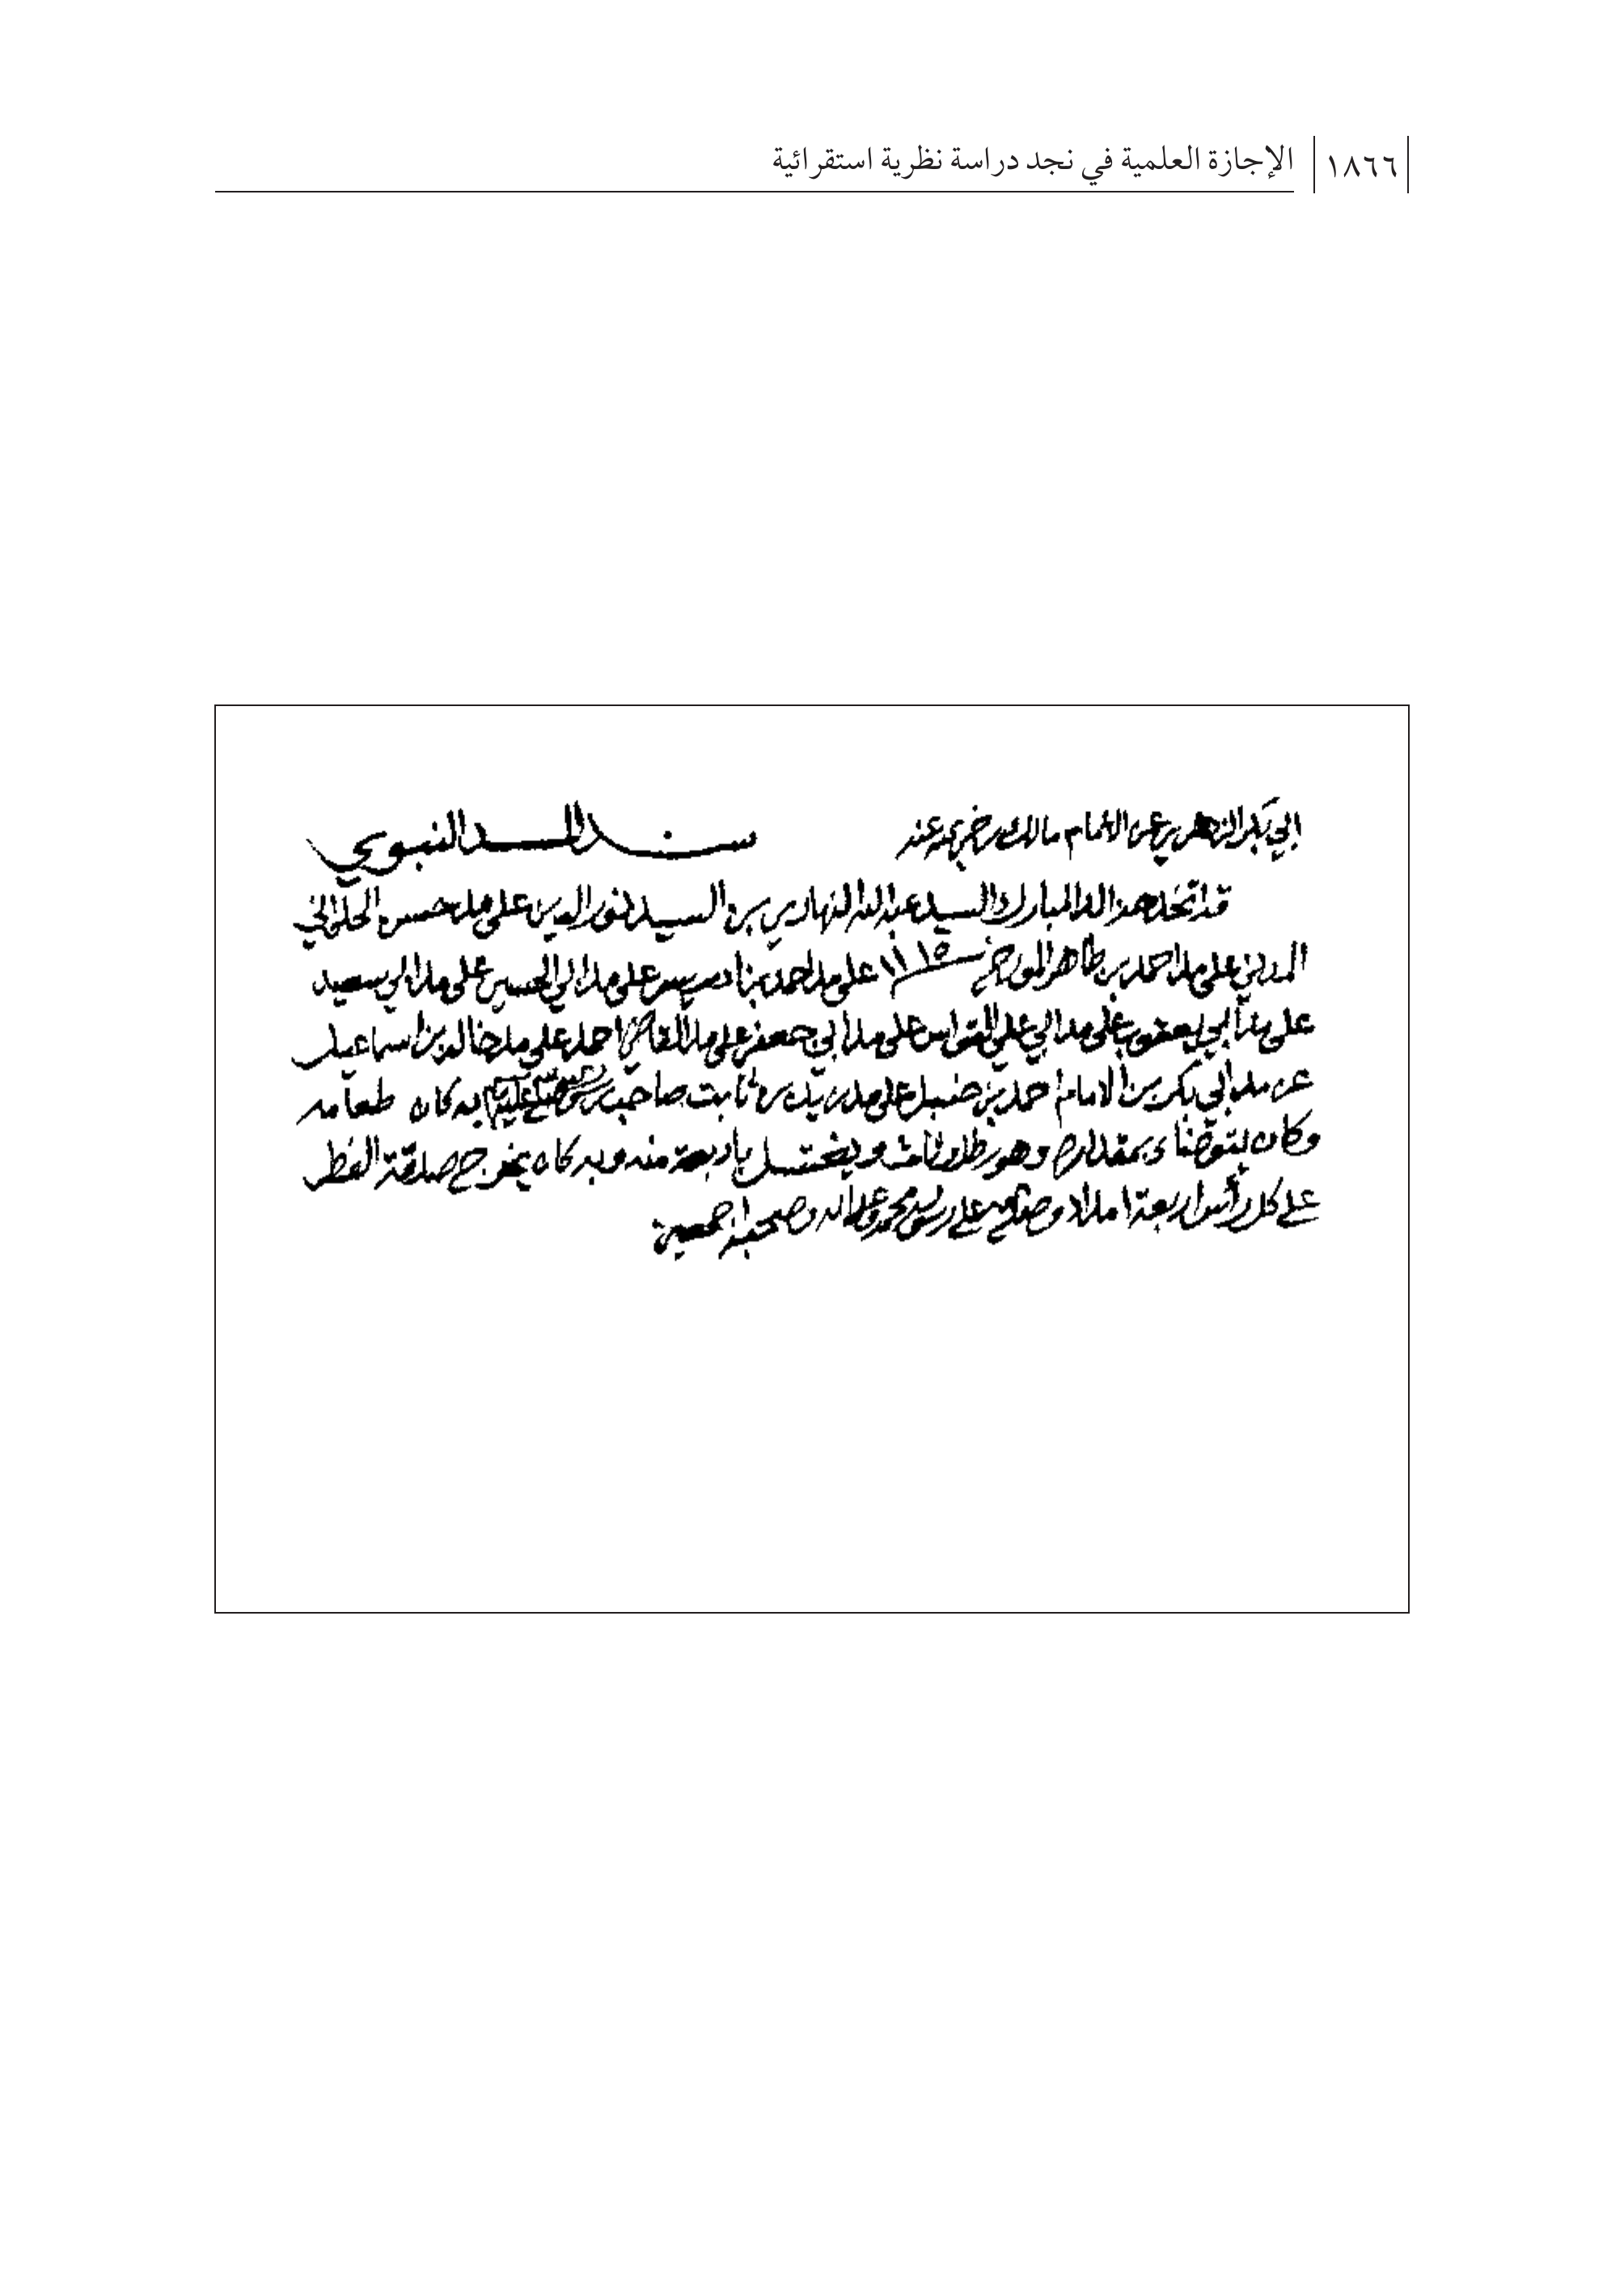 ١٨٦٦
الإجازة العلمية في نجد دراسة نظرية استقرائية
ابي بكر الزهري عن الامام مالك رضي الله عنه
سند المد النبوي
قد اتخذ هذا المد المبارك السيد عبد الله النهاري بن السيد نور الدين على مد حسن
المدني على مد احمد بن طاهر المورخ سنة ١١١٥ على مد احمد بن ادريس على مد ابي الحسين على مد ابي سعيد
على مد أبي يعقوب على مد ابي علي القواس على مد أبي جعفر على مد القاضي احمد على مد خالد بن اسماعيل
عن مد أبي بكر بن الامام احمد بن حنبل على مد زيد بن ثابت صاحب رسول الله صلى الله عليه به كان طعامه
وكان يتوضا بمقداره وهو رطل وثلث ويغتسل باربعة منه وبه كان يخرج صدقة الفطر
على كل رأس اربعة امداد وصلى الله على رسوله محمد وعلى اله وصحبه اجمعين